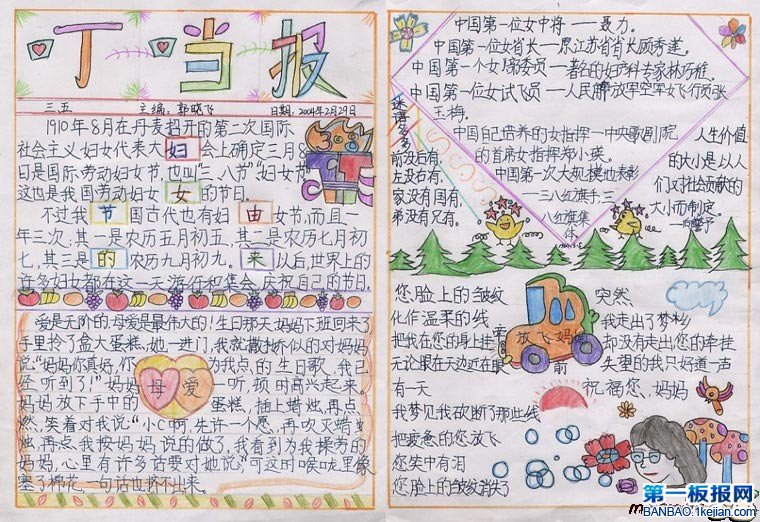 叮当报
三、五 主编:郭晓飞 日期:2004年2月29日
1910年8月在丹麦召开的第二次国际
社会主义妇女代表大 妇 会上确定三月8
日是国际劳动妇女节,也叫"三八节"妇女节
这也是我国劳动妇女 女 的节日.
不过我 节 国古代也有妇 由 女节,而且一
年三次:其一是农历五月初五,其二是农历七月初
七,其三是 的 农历九月初九。 来 以后,世界上的
许多妇女都在这一天游行和集会,庆祝自己的节日.
爱是无价的,母爱是最伟大的!生日那天,妈妈下班回来了,
手里拎了盒大蛋糕,她一进门,我就撒娇似的对妈妈
说:"妈妈你真好,你 为我点的,生日歌,我已
经听到了!"妈妈 母 爱 一听,顿时高兴起来。
妈妈放下手中的 蛋糕,插上蜡烛,再点
燃,笑着对我说:"小C啊,先许一个愿,再吹灭蜡
烛,再点我按妈妈说的做了,我看到为我操劳的
妈妈,心里有许多话要对她说,可这时喉咙里像
塞了棉花,一句话也挤不出来。
中国第一位女中将——聂力。
中国第一位女省长——原江苏省省长顾秀莲。
中国第一个女 委员——著名的妇产科专家林巧稚.
中国第一位女试飞员——人民解放军空军女飞行员张
玉梅。
中国自己培养的女指挥——中央歌剧院
的首席女指挥郑小英。
中国第一次大规模地表彰
——三八红旗手,三
八红旗集
体
谜语多多
前没后有,
左没右有,
家没有国有,
弟没有兄有。
人生价值
的大小是以人
们对社会贡献的
大小而制定。
您脸上的皱纹
化作温柔的线
把我在您的身上挂
无论眼在天边近在眼前
有一天
我梦见我砍断了那些线
把疲惫的您放飞
您笑中有泪
您脸上的皱纹消失了
放飞妈
突然,
我走出了梦乡
却没有走出您的牵挂
失望的我只好道一声
祝福您,妈妈
第一板报网
BANBAO.1kejian.com